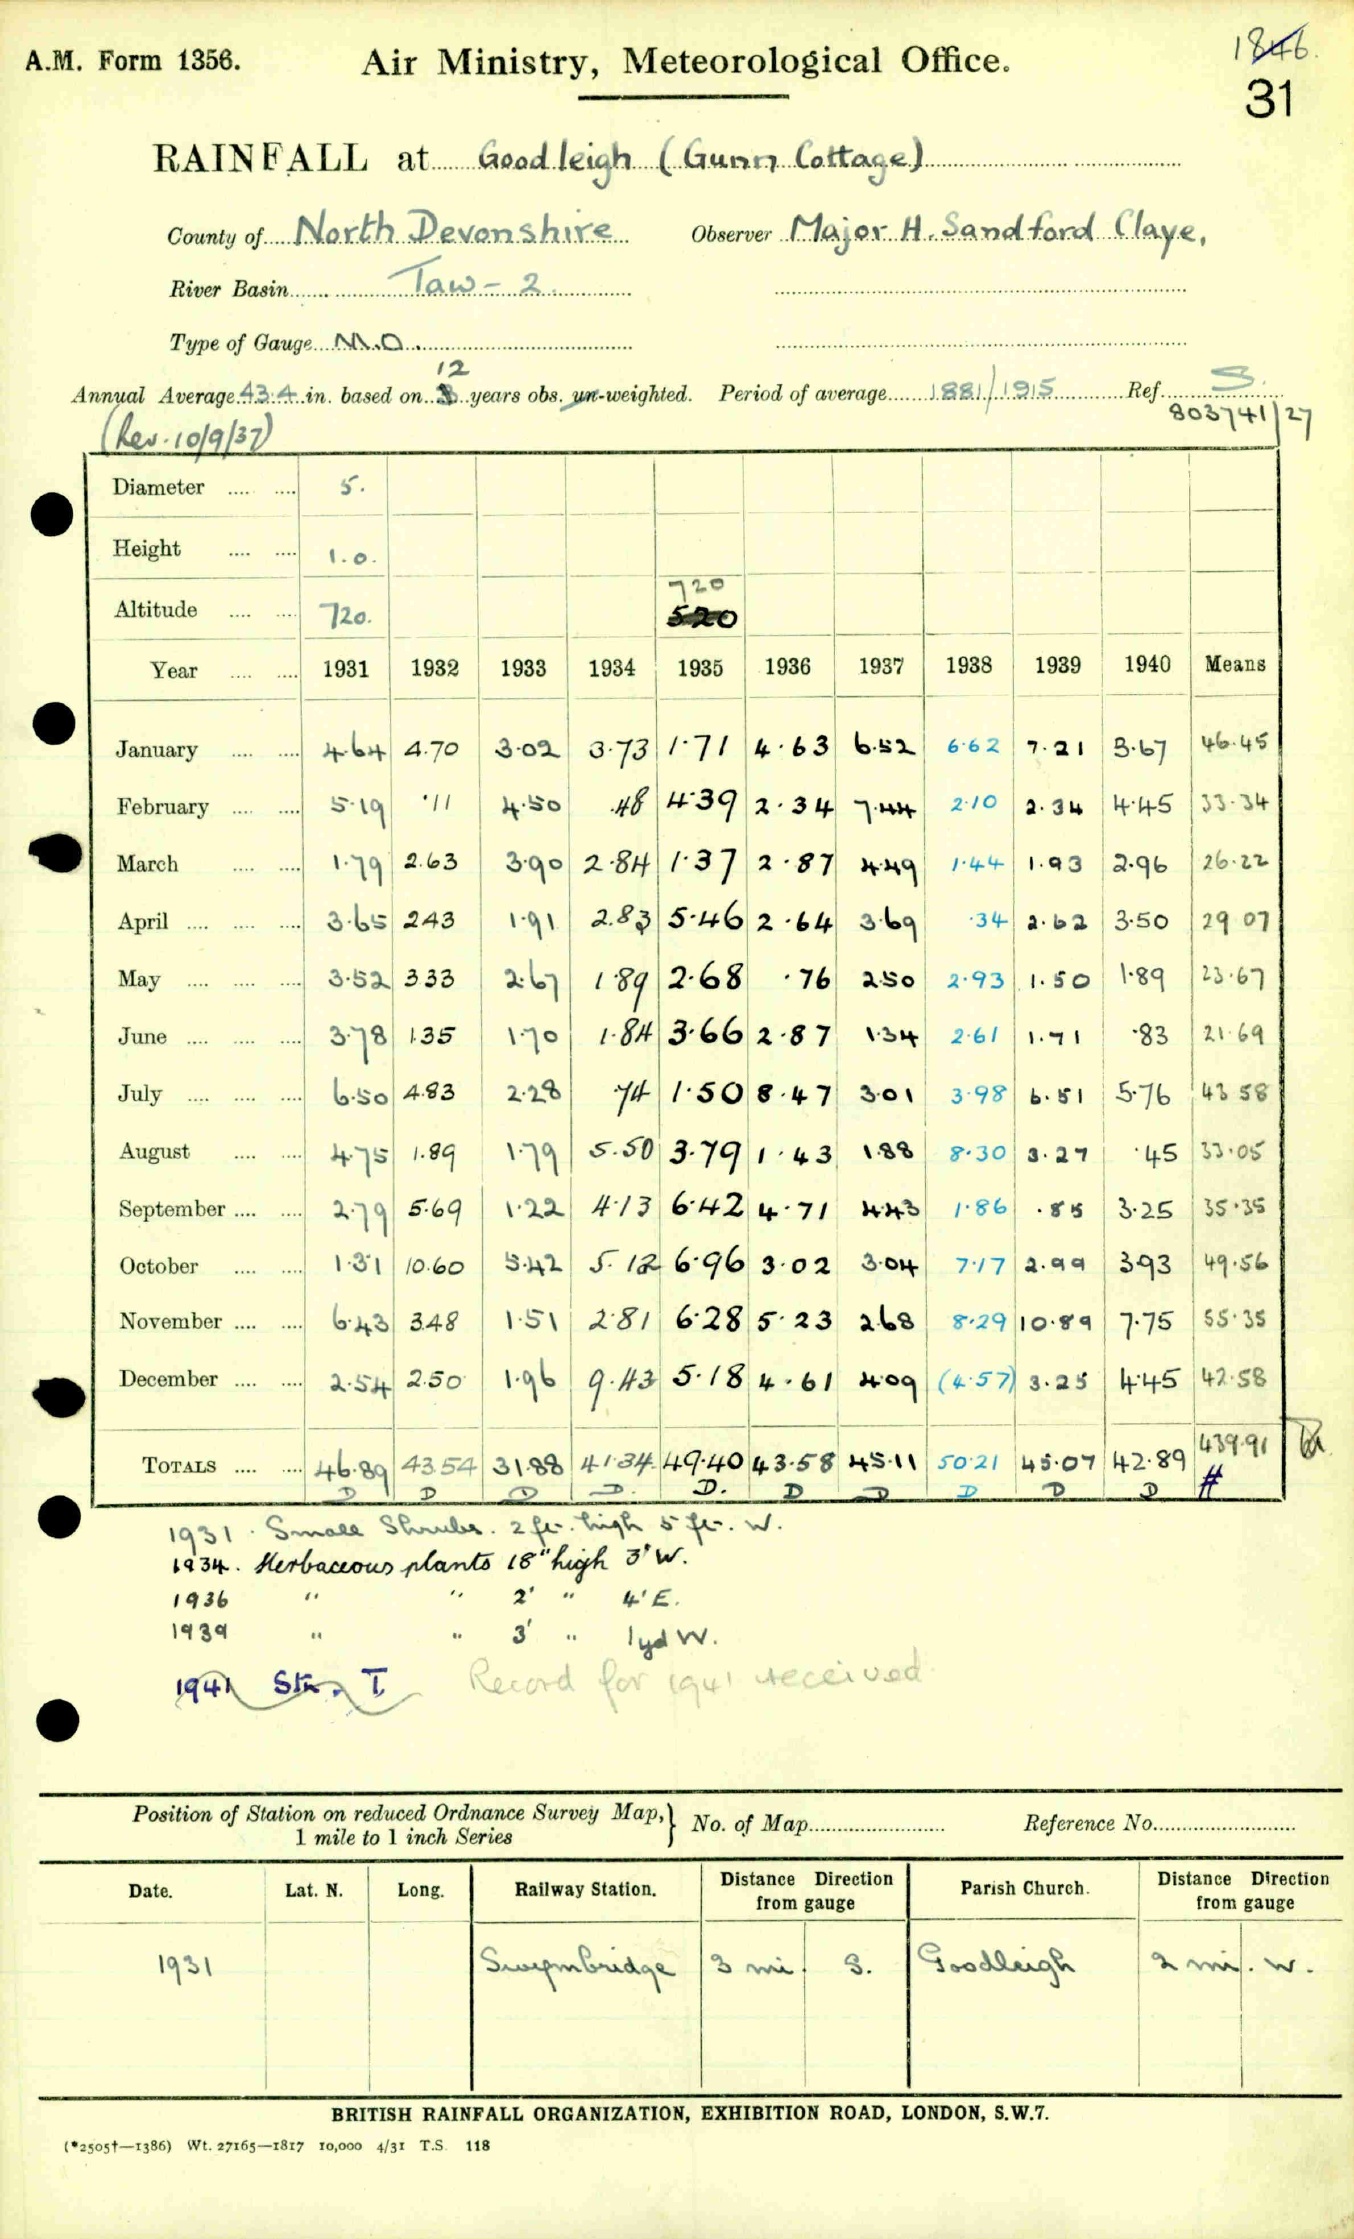 A.M. Form 1356. Air Ministry, Meteorological Office. 1846.
31
RAINFALL at Goodleigh (Gunn Cottage)
County of North Devonshire Observer Major H. Sandford Claye,
River Basin Taw - 2
Type of Gauge M.O.
12
Annual Average 43.4 in. based on years obs. un-weighted. Period of average 1881/1915 Ref. S.
803741/27
(Rev. 10/9/37)
Diameter .... .... 5.
Height .... .... 1.0.
720
Altitude .... .... 720. 520
Year .... .... 1931 1932 1933 1934 1935 1936 1937 1938 1939 1940 Means
January .... .... 4.64 4.70 3.02 3.73 1.71 4.63 6.52 6.62 7.21 3.67 46.45
February .... .... 5.19 .11 4.50 .48 4.39 2.34 7.44 2.10 2.34 4.45 33.34
March .... .... 1.79 2.63 3.90 2.84 1.37 2.87 4.49 1.44 1.93 2.96 26.22
April .... .... .... 3.65 2.43 1.91 2.83 5.46 2.64 3.69 .34 2.62 3.50 29 07
May .... .... .... 3.52 3.33 2.67 1.89 2.68 .76 2.50 2.93 1.50 1.89 23.67
June .... .... .... 3.78 1.35 1.70 1.84 3.66 2.87 1.34 2.61 1.71 .83 21.69
July .... .... .... 6.50 4.83 2.28 .74 1.50 8.47 3.01 3.98 6.51 5.76 43 58
August .... .... 4.75 1.89 1.79 5.50 3.79 1.43 1.88 8.30 3.27 .45 33.05
September .... .... 2.79 5.69 1.22 4.13 6.42 4.71 4.43 1.86 .85 3.25 35.35
October .... .... 1.31 10.60 5.42 5.12 6.96 3.02 3.04 7.17 2.99 3.93 49.56
November .... .... 6.43 3.48 1.51 2.81 6.28 5.23 2.68 8.29 10.89 7.75 55.35
December .... .... 2.54 2.50 1.96 9.43 5.18 4.61 4.09 (4.57) 3.25 4.45 42.58
TOTALS .... .... 46.89 43.54 31.88 41.34 49.40 43.58 45.11 50.21 45.07 42.89 439.91
D D D D. D. D D D D D #
1931. Small Shrubs. 2 ft. high 5 ft. W.
1934. Herbaceous plants 18" high 3' W.
1936 " " 2' " 4' E.
1939 " " 3' " 1 yd W.
1941 Stn. T. Record for 1941 received
Position of Station on reduced Ordnance Survey Map, } No. of Map Reference No.
1 mile to 1 inch Series
Date. Lat. N. Long. Railway Station. Distance Direction from gauge Parish Church. Distance Direction from gauge
1931 Swymbridge 3 mi. S. Goodleigh 2 mi. W.
BRITISH RAINFALL ORGANIZATION, EXHIBITION ROAD, LONDON, S.W.7.
(*2505†—1386) Wt. 27165—1817 10,000 4/31 T.S. 118